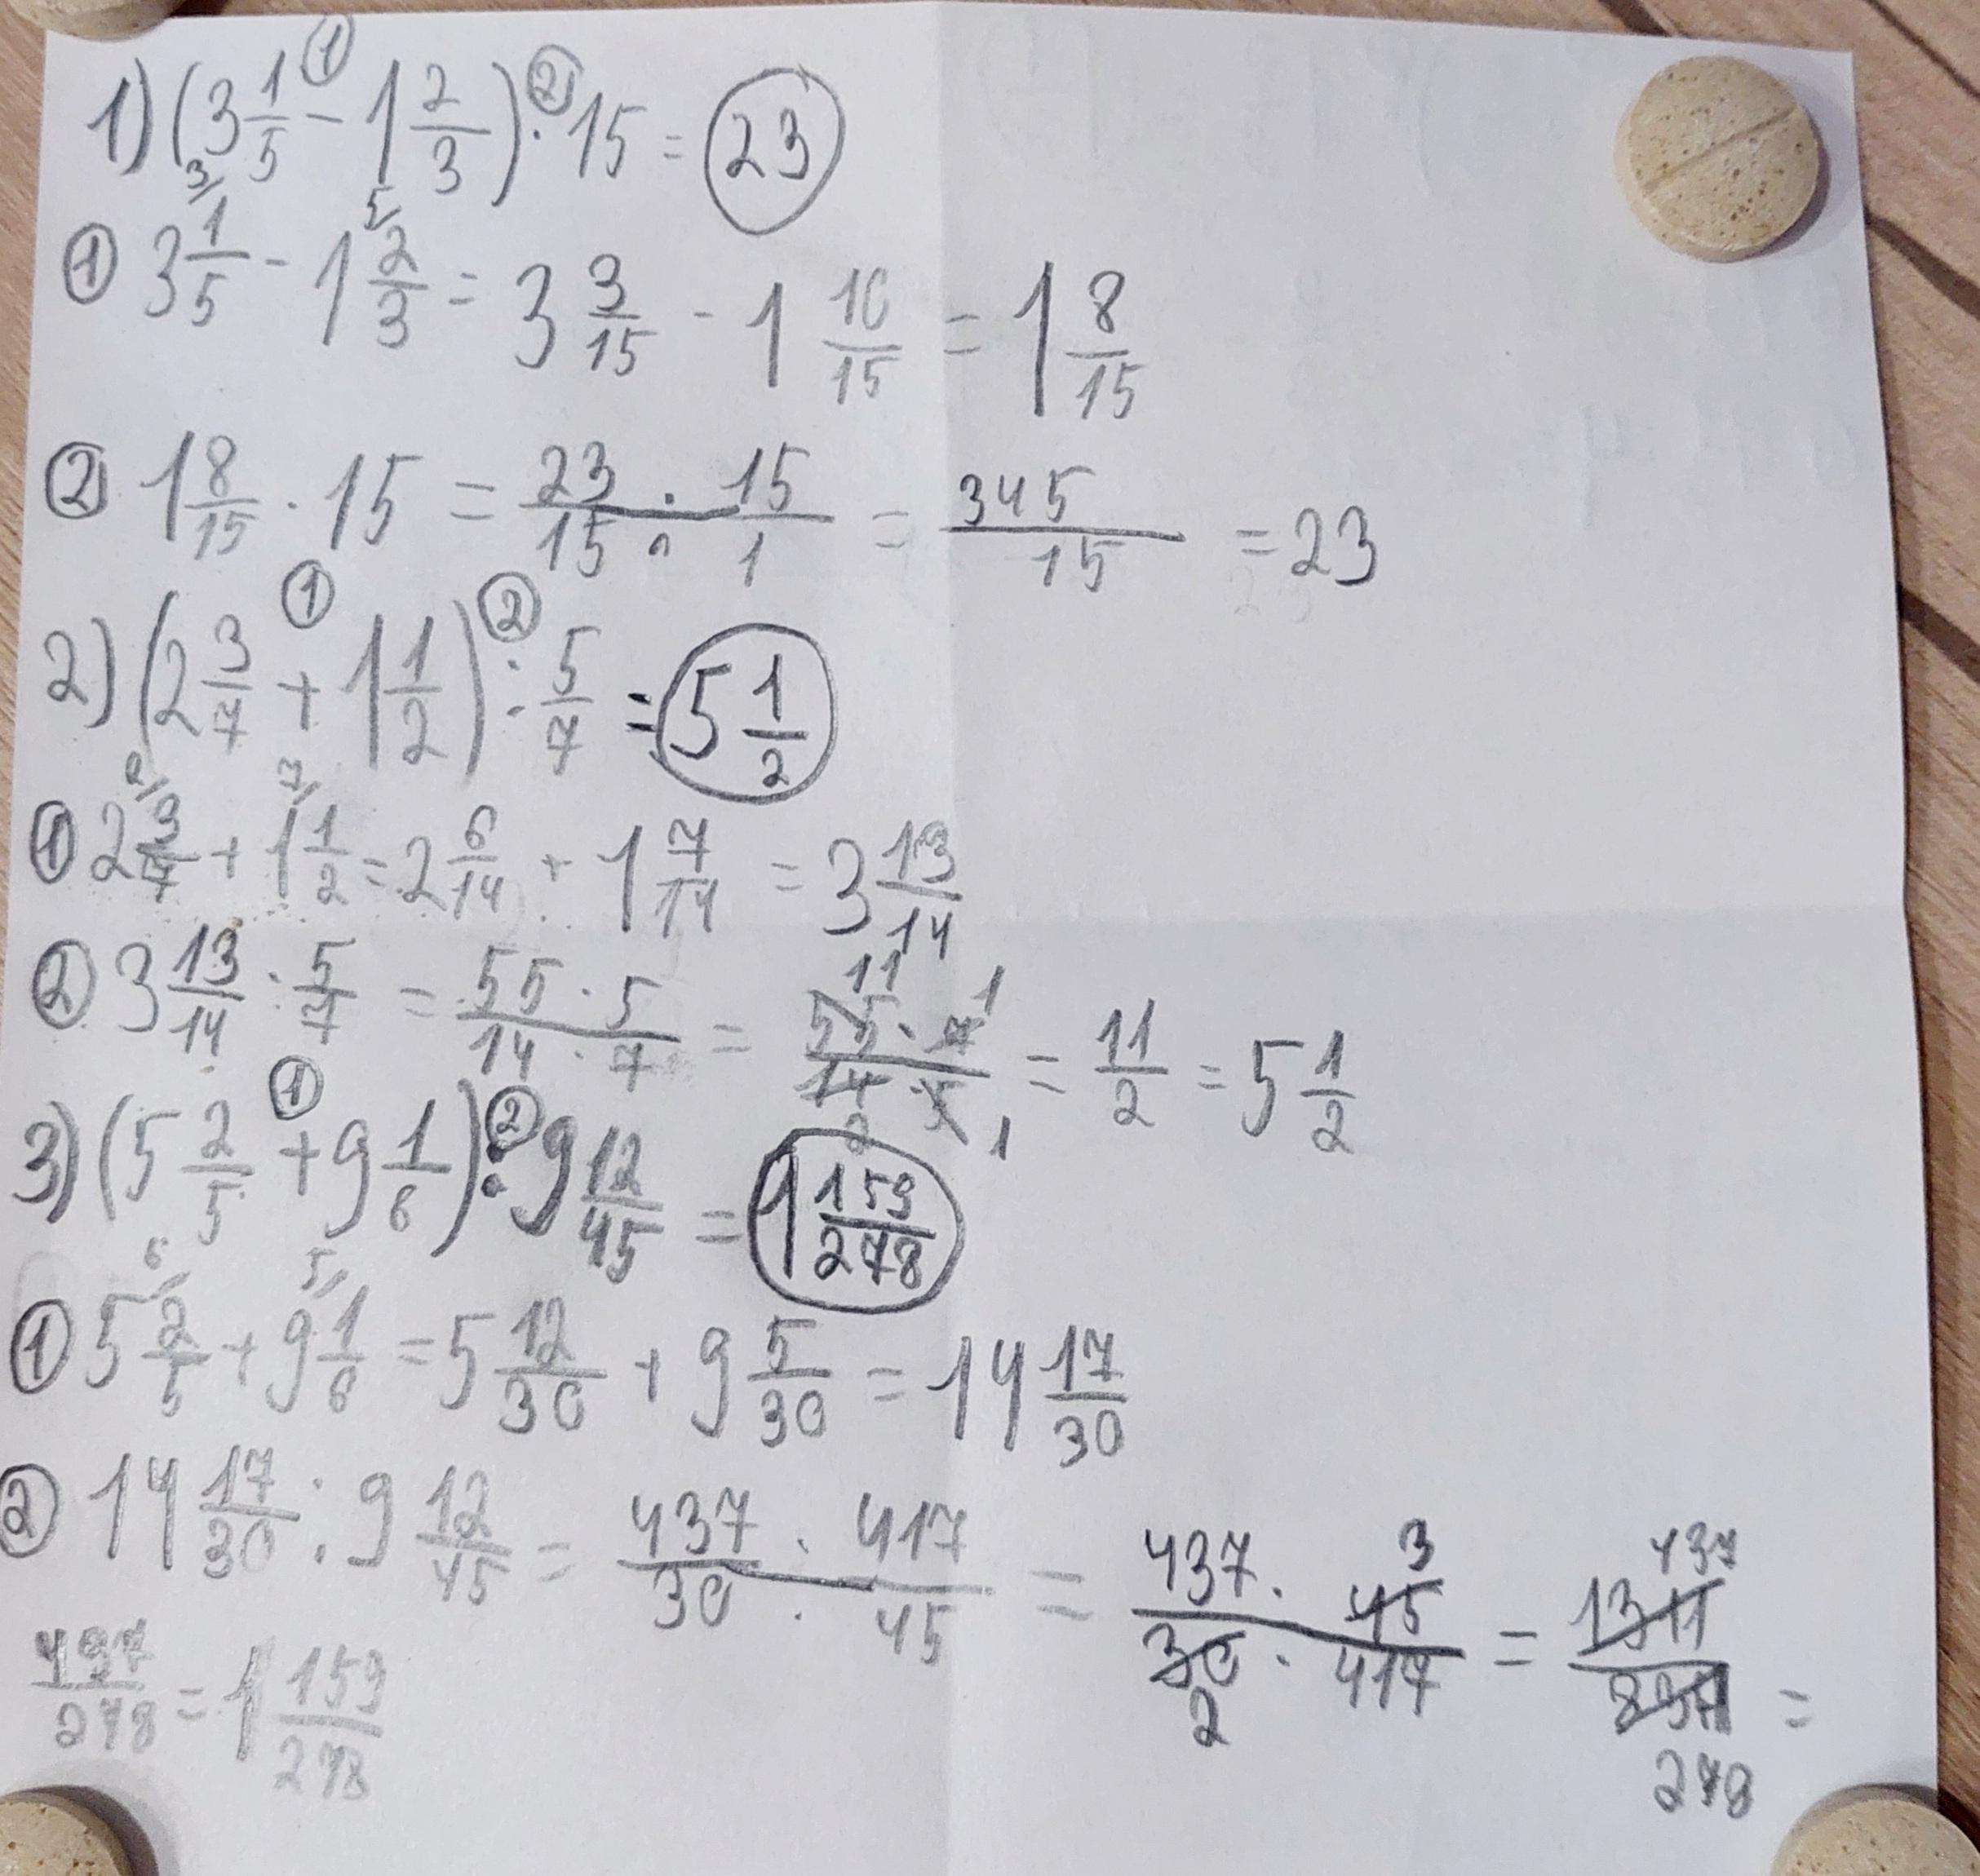 1) (3 1/5 - 1 2/3) · 15 = 23
① 3 1/5 - 1 2/3 = 3 3/15 - 1 10/15 = 1 8/15
② 1 8/15 · 15 = 23/15 · 15/1 = 345/15 = 23
2) (2 3/7 + 1 1/2) : 5/7 = 5 1/2
① 2 3/7 + 1 1/2 = 2 6/14 + 1 7/14 = 3 13/14
② 3 13/14 : 5/7 = 55 · 5 / 14 · 7 = 55 · 7 / 14 · 5 = 11/2 = 5 1/2
3) (5 2/5 + 9 1/6) : 9 12/45 = 1 159/278
① 5 2/5 + 9 1/6 = 5 12/30 + 9 5/30 = 14 17/30
② 14 17/30 : 9 12/45 = 437/30 : 417/45 = 437 · 45 / 30 · 417 = 1311/834 =
437/278 = 1 159/278